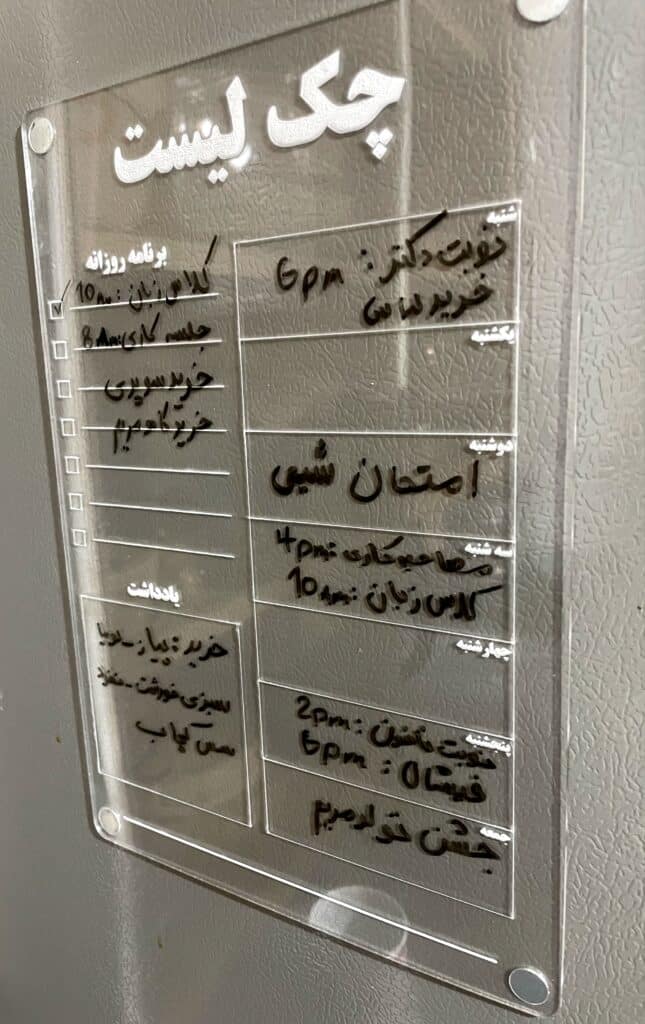 چک لیست
شنبه
نوبت دکتر: 6pm
خرید لباس
یکشنبه
دوشنبه
امتحان شیمی
سه شنبه
مصاحبه کاری: 4pm
کلاس زبان: 10Am
چهارشنبه
پنجشنبه
نوبت ناخن: 2pm
فیشال: 6pm
جمعه
جشن تولد مریم
برنامه روزانه
کلاس زبان: 10Am
جلسه کاری: 8Am
خرید سوپری
خرید کادو مریم
یادداشت
خرید: پیاز - لوبیا
سبزی خورشت -
سس کباب